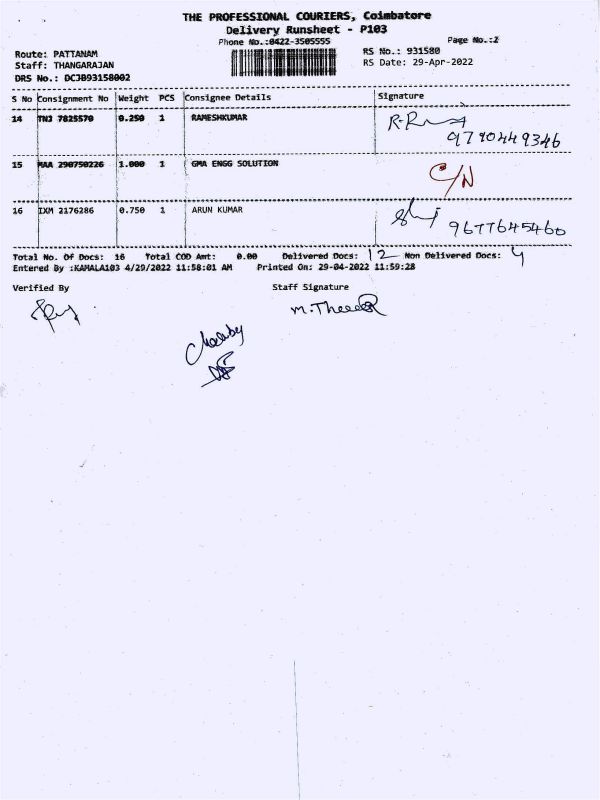 THE PROFESSIONAL COURIERS, Coimbatore
Delivery Runsheet - P103
Phone No.:0422-3505555 Page No.:2
Route: PATTANAM RS No.: 931580
Staff: THANGARAJAN RS Date: 29-Apr-2022
DRS No.: DCJ093158002
S No Consignment No Weight PCS Consignee Details Signature
14 TNJ 7825570 0.250 1 RAMESHKUMAR
9790449346
15 MAA 290750226 1.000 1 GMA ENGG SOLUTION C/N
16 IXM 2176286 0.750 1 ARUN KUMAR
9677645460
Total No. Of Docs: 16 Total COD Amt: 0.00 Delivered Docs: 12 Non Delivered Docs: 4
Entered By :KAMALA103 4/29/2022 11:58:01 AM Printed On: 29-04-2022 11:59:28
Verified By Staff Signature